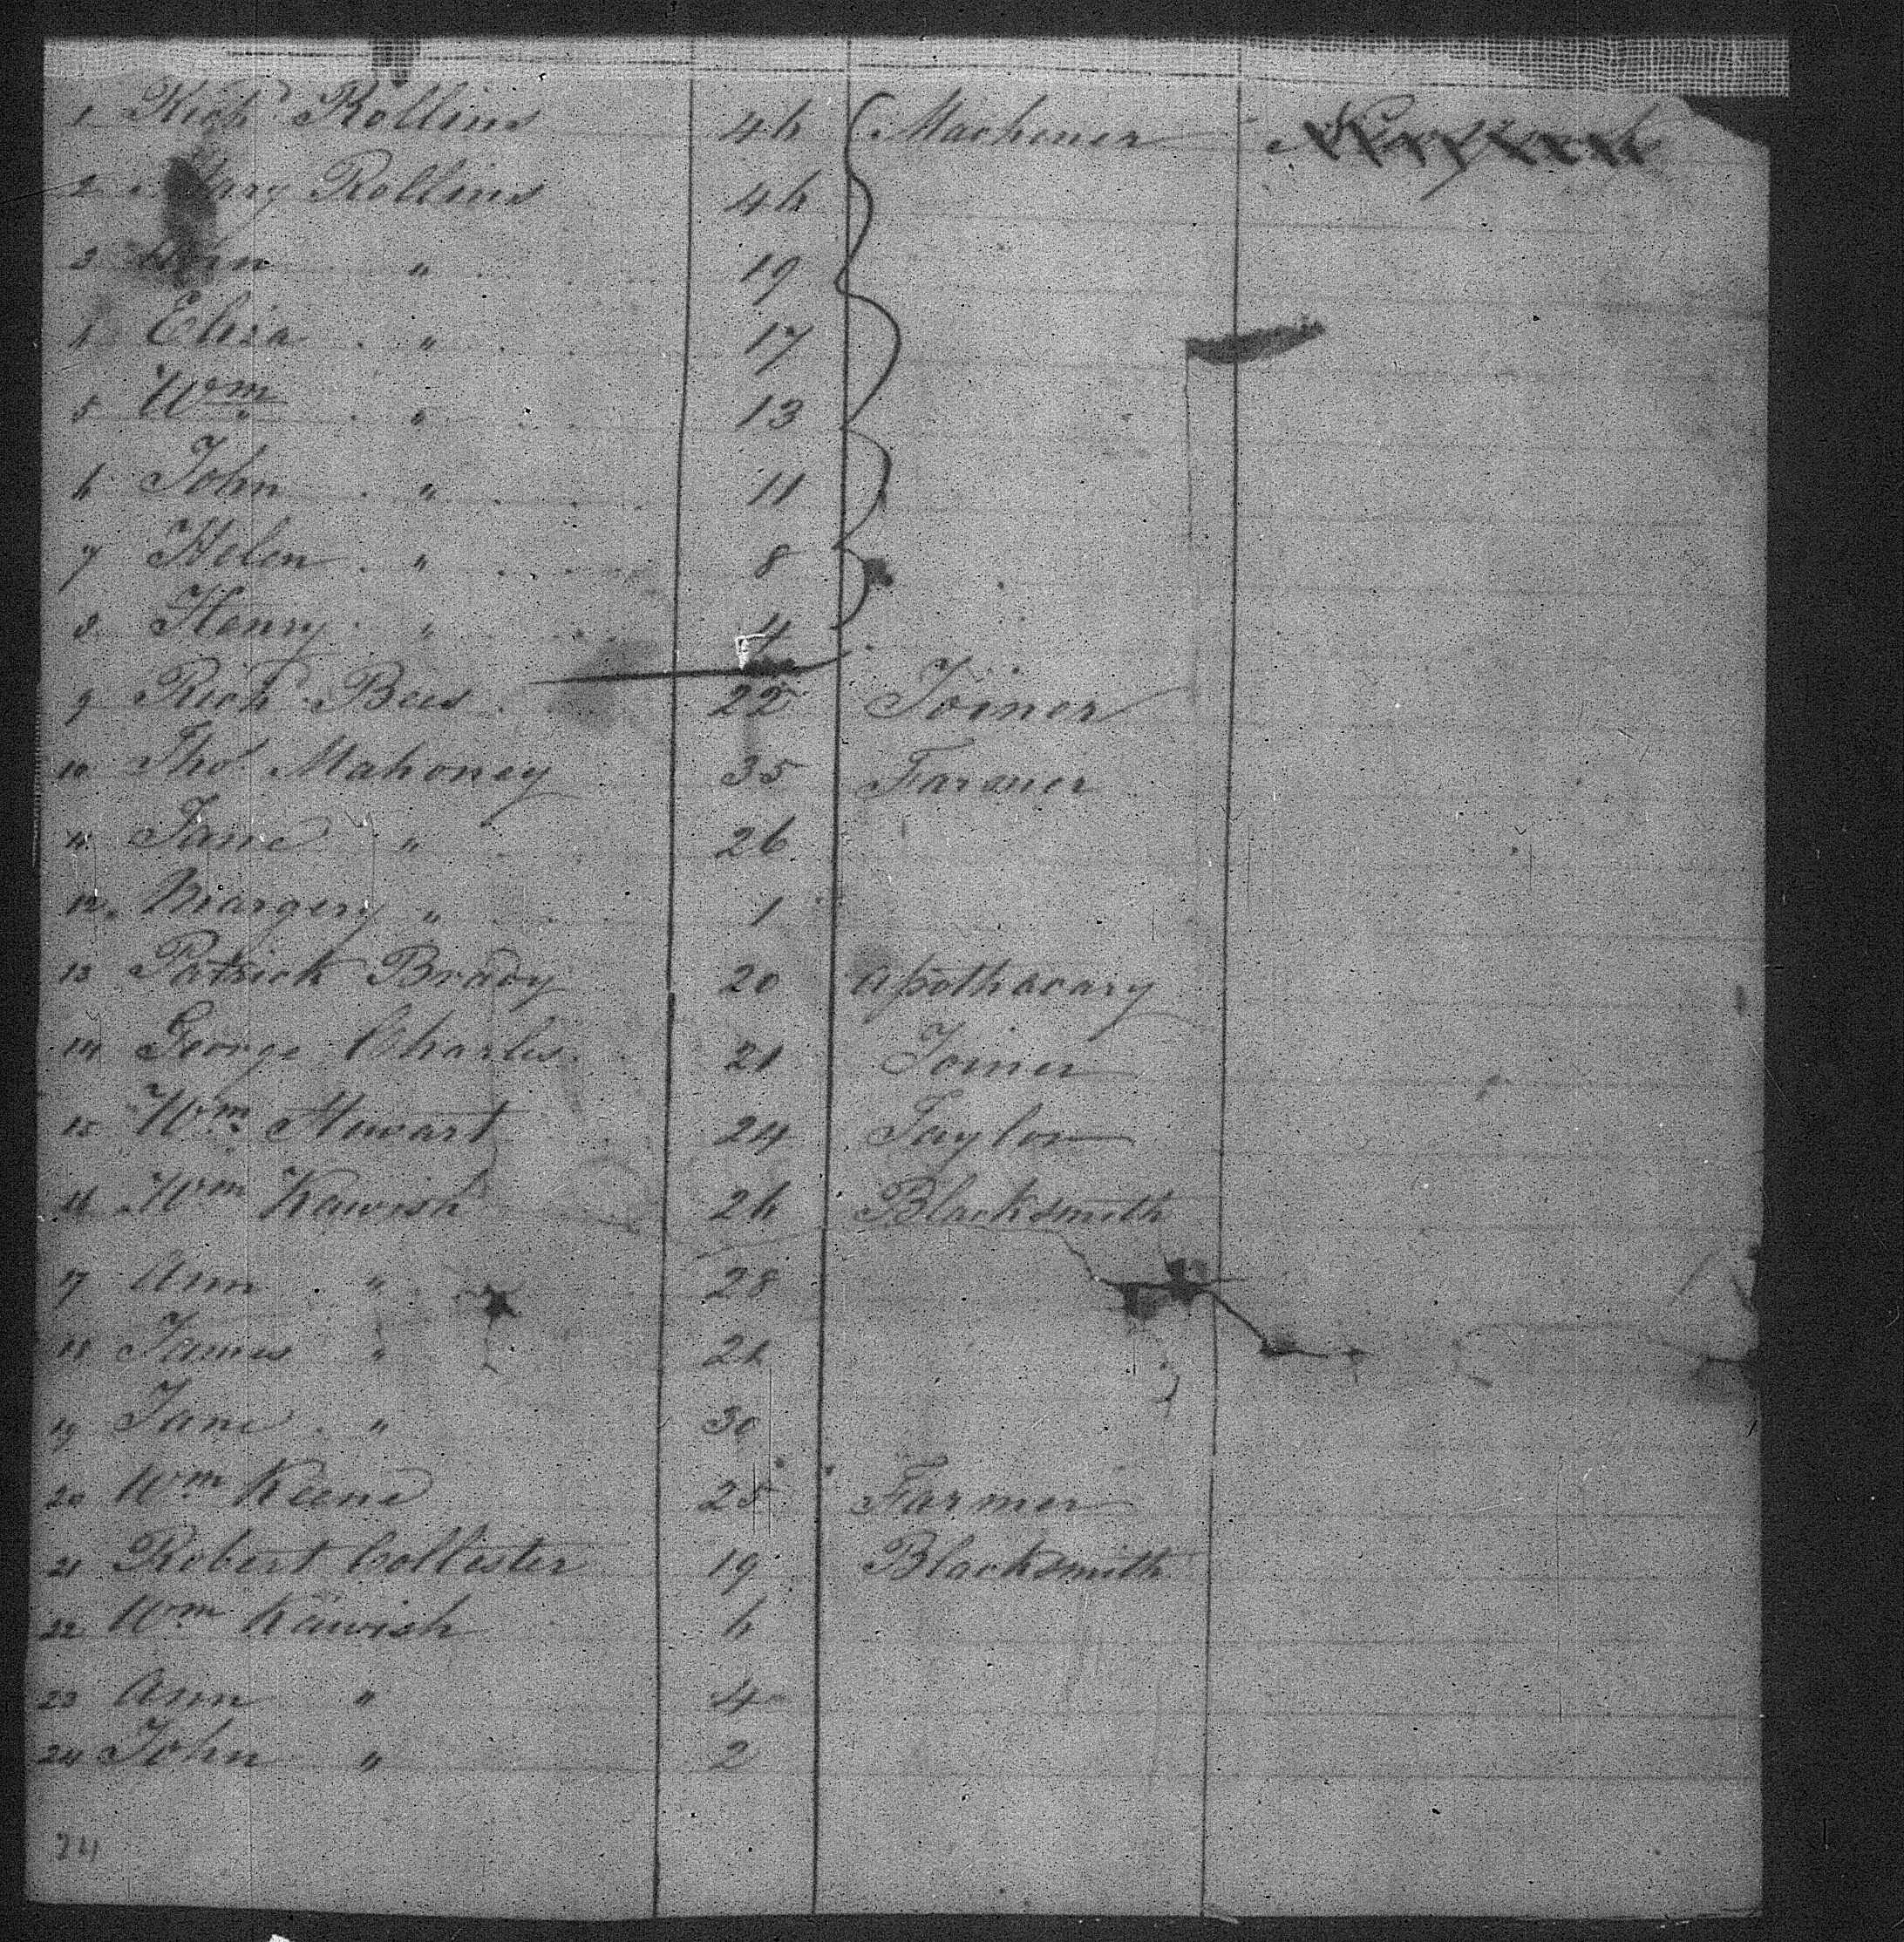 1 Richd Rollins 46 Machener
2 Mary Rollins 46
3 Ann " 19
4 Eliza " 17
5 Wm " 13
6 John " 11
7 Helen " 8
8 Henry " 4
9 Richd Bees 22 Joiner
10 Thos Mahoney 35 Farmer
11 Jane " 26
12 Margery " 1
13 Patrick Brady 20 Apothacary
14 George Charles 21 Joiner
15 Wm Stewart 24 Taylor
16 Wm Kawish 26 Blacksmith
17 Ann " 28
18 James " 21
19 Jane " 30
20 Wm Keene 25 Farmer
21 Robert Collister 19 Blacksmith
22 Wm Kawish 6
23 Ann " 4
24 John " 2
24